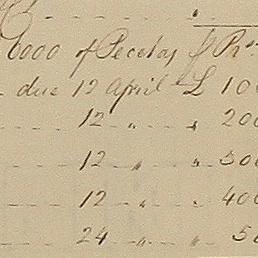 6000 of Pecetas
due 12 April £ 10
12 " " 200
12 " " 300
12 " " 400
24 " " 50